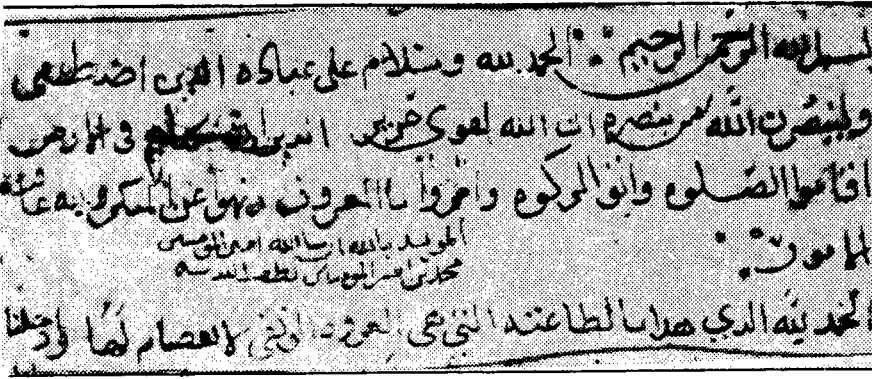 بسم الله الرحمن الرحيم الحمد لله وسلام على عباده الذين اصطفى
ولينصرن الله من ينصره ان الله لقوي عزيز الذين ان مكناهم في الارض
اقاموا الصلوه واتوا الزكوه وامروا بالمعروف ونهوا عن المنكر ولله عاقبة
الامور
المويد بالله ان شا الله امير المومنين
محمد بن امير المومنين لطف الله به
الحمد لله الذي هدانا لطاعته التي هي العروة الوثقى لا انفصام لها